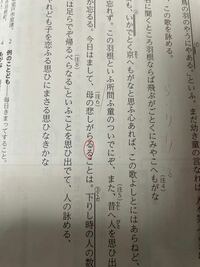 馬の羽のやうにやある」といふ。まだ幼き童の言なれば、
この歌を詠める。
に聞くところ羽根ならば飛ぶがごとくにみやこへもがな
も、いかでとく京へもがなと思ふ心あれば、この歌よしとにはあらねど、
忘れず。この羽根といふ所問ふ童のついでにぞ、また、昔へ人を思ひ出
か忘るる。今日はまして、母の悲しがらるることは。下りし時の人の数
は足らでぞ帰るべらなる」といふことを思ひ出でて、人の詠める、
れども子を恋ふる思ひにまさる思ひなきかな